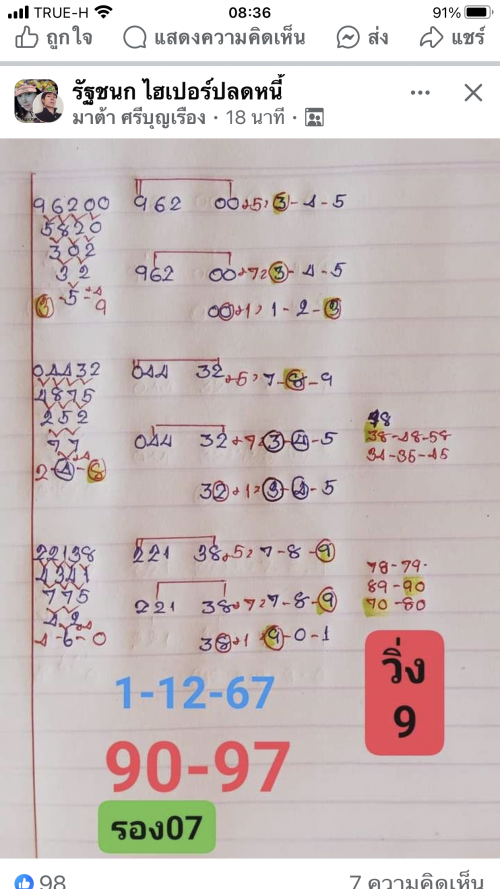 TRUE-H 08:36 91%
ถูกใจ แสดงความคิดเห็น ส่ง แชร์
รัฐชนก ไฮเปอร์ปลดหนี้
มาต้า ศรีบุญเรือง · 18 นาที ·
96200 962 00+5, 3-4-5
5820
302
32 962 00+7, 3-4-5
3-5-9
00+1, 1-2-3
04432 044 32+5, 7-8-9
4875
252 044 32+7, 3-4-5
77
2-4-6
32+1, 3-4-5
48
38-48-58
34-35-45
22138 221 38+5, 7-8-9
4341
775 221 38+7, 7-8-9
42
4-6-0 38+1 9-0-1
78-79.
89-90
70-80
1-12-67
90-97
รอง07
วิ่ง
9
98 7 ความคิดเห็น